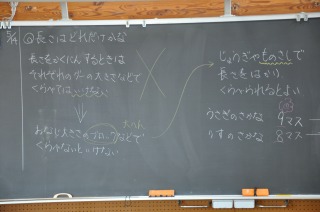 5/4 ◎長さはどれだけかな
長さをかくにんするときは
それぞれの
大きさなどで
くらべては
おなじ大きさのブロックなどで
くらべないといけない
じょうぎやものさしで
長さをはかり
くらべられるとよい
うさぎのさかな 9マス
りすのさかな 8マス